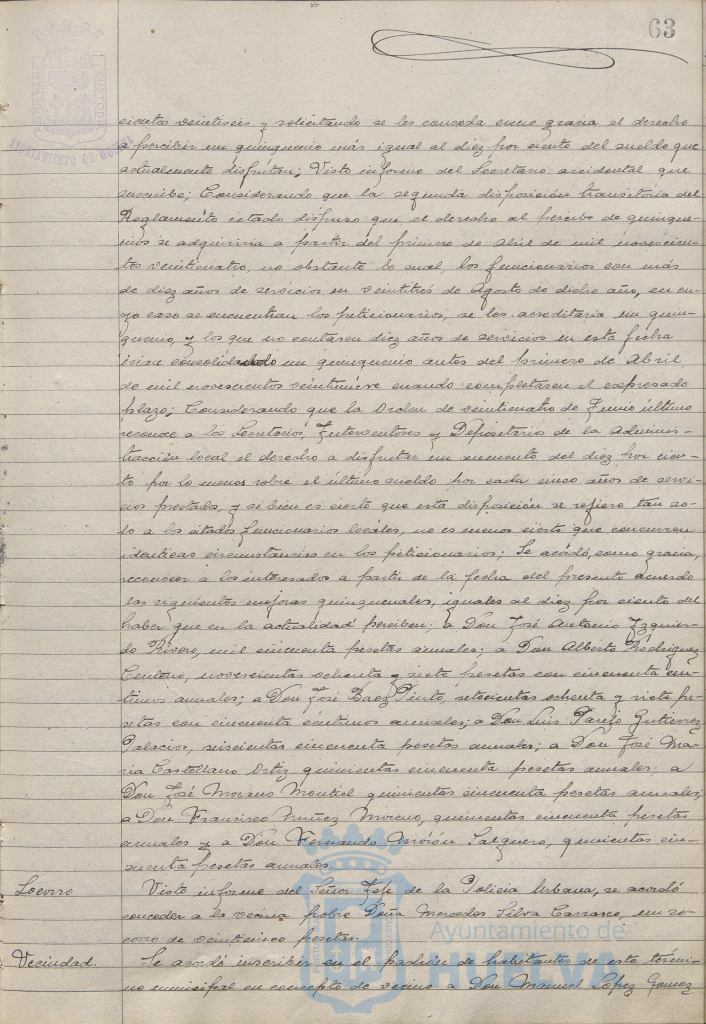 63
cientos veintiseis y solicitando se les conceda como gracia el derecho
a percibir un quinquenio más igual al diez por ciento del sueldo que
actualmente disfrutan; Visto informe del Secretario accidental que
suscribe; Considerando que la segunda disposición transitoria del
Reglamento citado dispuso que el derecho al percibo de quinque-
nios se adquiriria a partir del primero de Abril de mil novecien-
tos veinticuatro, no obstante lo cual, los funcionarios con más
de diez años de servicios en veintitrés de Agosto de dicho año, en cu-
yo caso se encuentran los peticionarios, se les acreditaria un quin-
quenio, y los que no contasen diez años de servicios en esta fecha
irian consolidando un quinquenio antes del primero de Abril
de mil novecientos veintinueve cuando completasen el expresado
plazo; Considerando que la Orden de veinticuatro de Junio último
reconoce a los Secretarios, Interventores y Depositarios de la Adminis-
tracción local el derecho a disfrutar un aumento del diez por cien-
to por lo menos sobre el último sueldo por cada cinco años de servi-
cios prestados, y si bien es cierto que esta disposición se refiere tan so-
lo a los citados funcionarios locales, no es menos cierto que concurren
identicas circunstancias en los peticionarios; Se acordó, como gracia,
reconocer a los interesados a partir de la fecha del presente acuerdo
las siguientes mejoras quinquenales, iguales al diez por ciento del
haber que en la actualidad perciben; a Don José Antonio Izquier-
do Rivero, mil cincuenta pesetas anuales; a Don Alberto Rodriguez
Centeno, novecientas ochenta y siete pesetas con cincuenta cen-
timos anuales; a Don José Baez Pinto, setecientas ochenta y siete pe-
setas con cincuenta céntimos anuales; a Don Luis Parejo Gutierrez
Palacios, seiscientas cincuenta pesetas anuales; a Don José Ma-
ria Castellano Ortiz quinientas cincuenta pesetas anuales; a
Don José Moreno Montiel quinientas cincuenta pesetas anuales;
a Don Francisco Nuñez Moreno, quinientas cincuenta pesetas
anuales y a Don Fernando Salguero, quinientas cin-
cuenta pesetas anuales.
Socorro
Visto informe del Señor Jefe de la Policia Urbana, se acordó
conceder a la vecina pobre Doña Mercedes Silva Carrasco, un so-
corro de veinticinco pesetas.
Vecindad.
Se acordó inscribir en el padrón de habitantes de este térmi-
no municipal en concepto de vecino a Don Manuel López Gomez
Ayuntamiento de
HUELVA